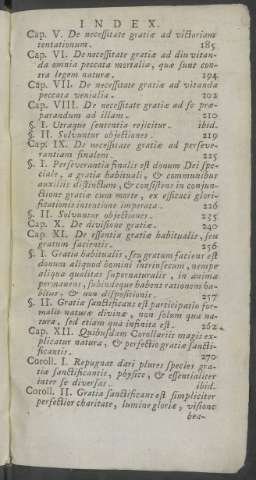 INDEX.
Cap. V. De necessitate gratiæ ad victoriam
tentationum. 185
Cap. VI. De necessitate gratiæ ad diu vitan-
da omnia peccata mortalia, quæ sunt con-
tra legem naturæ. 194
Cap. VII. De necessitate gratiæ ad vitanda
peccata venialia. 202
Cap. VIII. De necessitate gratiæ ad se præ-
parandum ad illam. 210
§. I. Utraque sententia rejicitur. ibid.
§. II. Solvuntur objectiones. 219
Cap. IX. De necessitate gratiæ ad perseve-
rantiam finalem. 225
§. I. Perseverantia finalis est donum Dei spe-
ciale, a gratia habituali, & communibus
auxiliis distinctum, & consistens in conjun-
ctione gratiæ cum morte, ex efficaci glori-
ficationis intentione imperata. 226
§. II. Solvuntur objectiones. 235
Cap. X. De divisione gratiæ. 240
Cap. XI. De essentia gratiæ habitualis, seu
gratum facientis. 256
§. I. Gratia habitualis, seu gratum faciens est
donum aliquod homini intrinsecum, nempe
aliqua qualitas supernaturalis, in anima
permanens, subindeque habens rationem ha-
bitus, & non dispositionis. 257
§. II. Gratia sanctificans est participatio for-
malis naturæ divinæ, non solum qua na-
tura, sed etiam qua infinita est. 262
Cap. XII. Quibusdam Corollariis magis ex-
plicatur natura, & perfectio gratiæ sancti-
ficantis. 270
Coroll. I. Repugnat dari plures species gra-
tiæ sanctificantis, physice, & essentialiter
inter se diversas. ibid.
Coroll. II. Gratia sanctificans est simpliciter
perfectior charitate, lumine gloriæ, visione
bea-